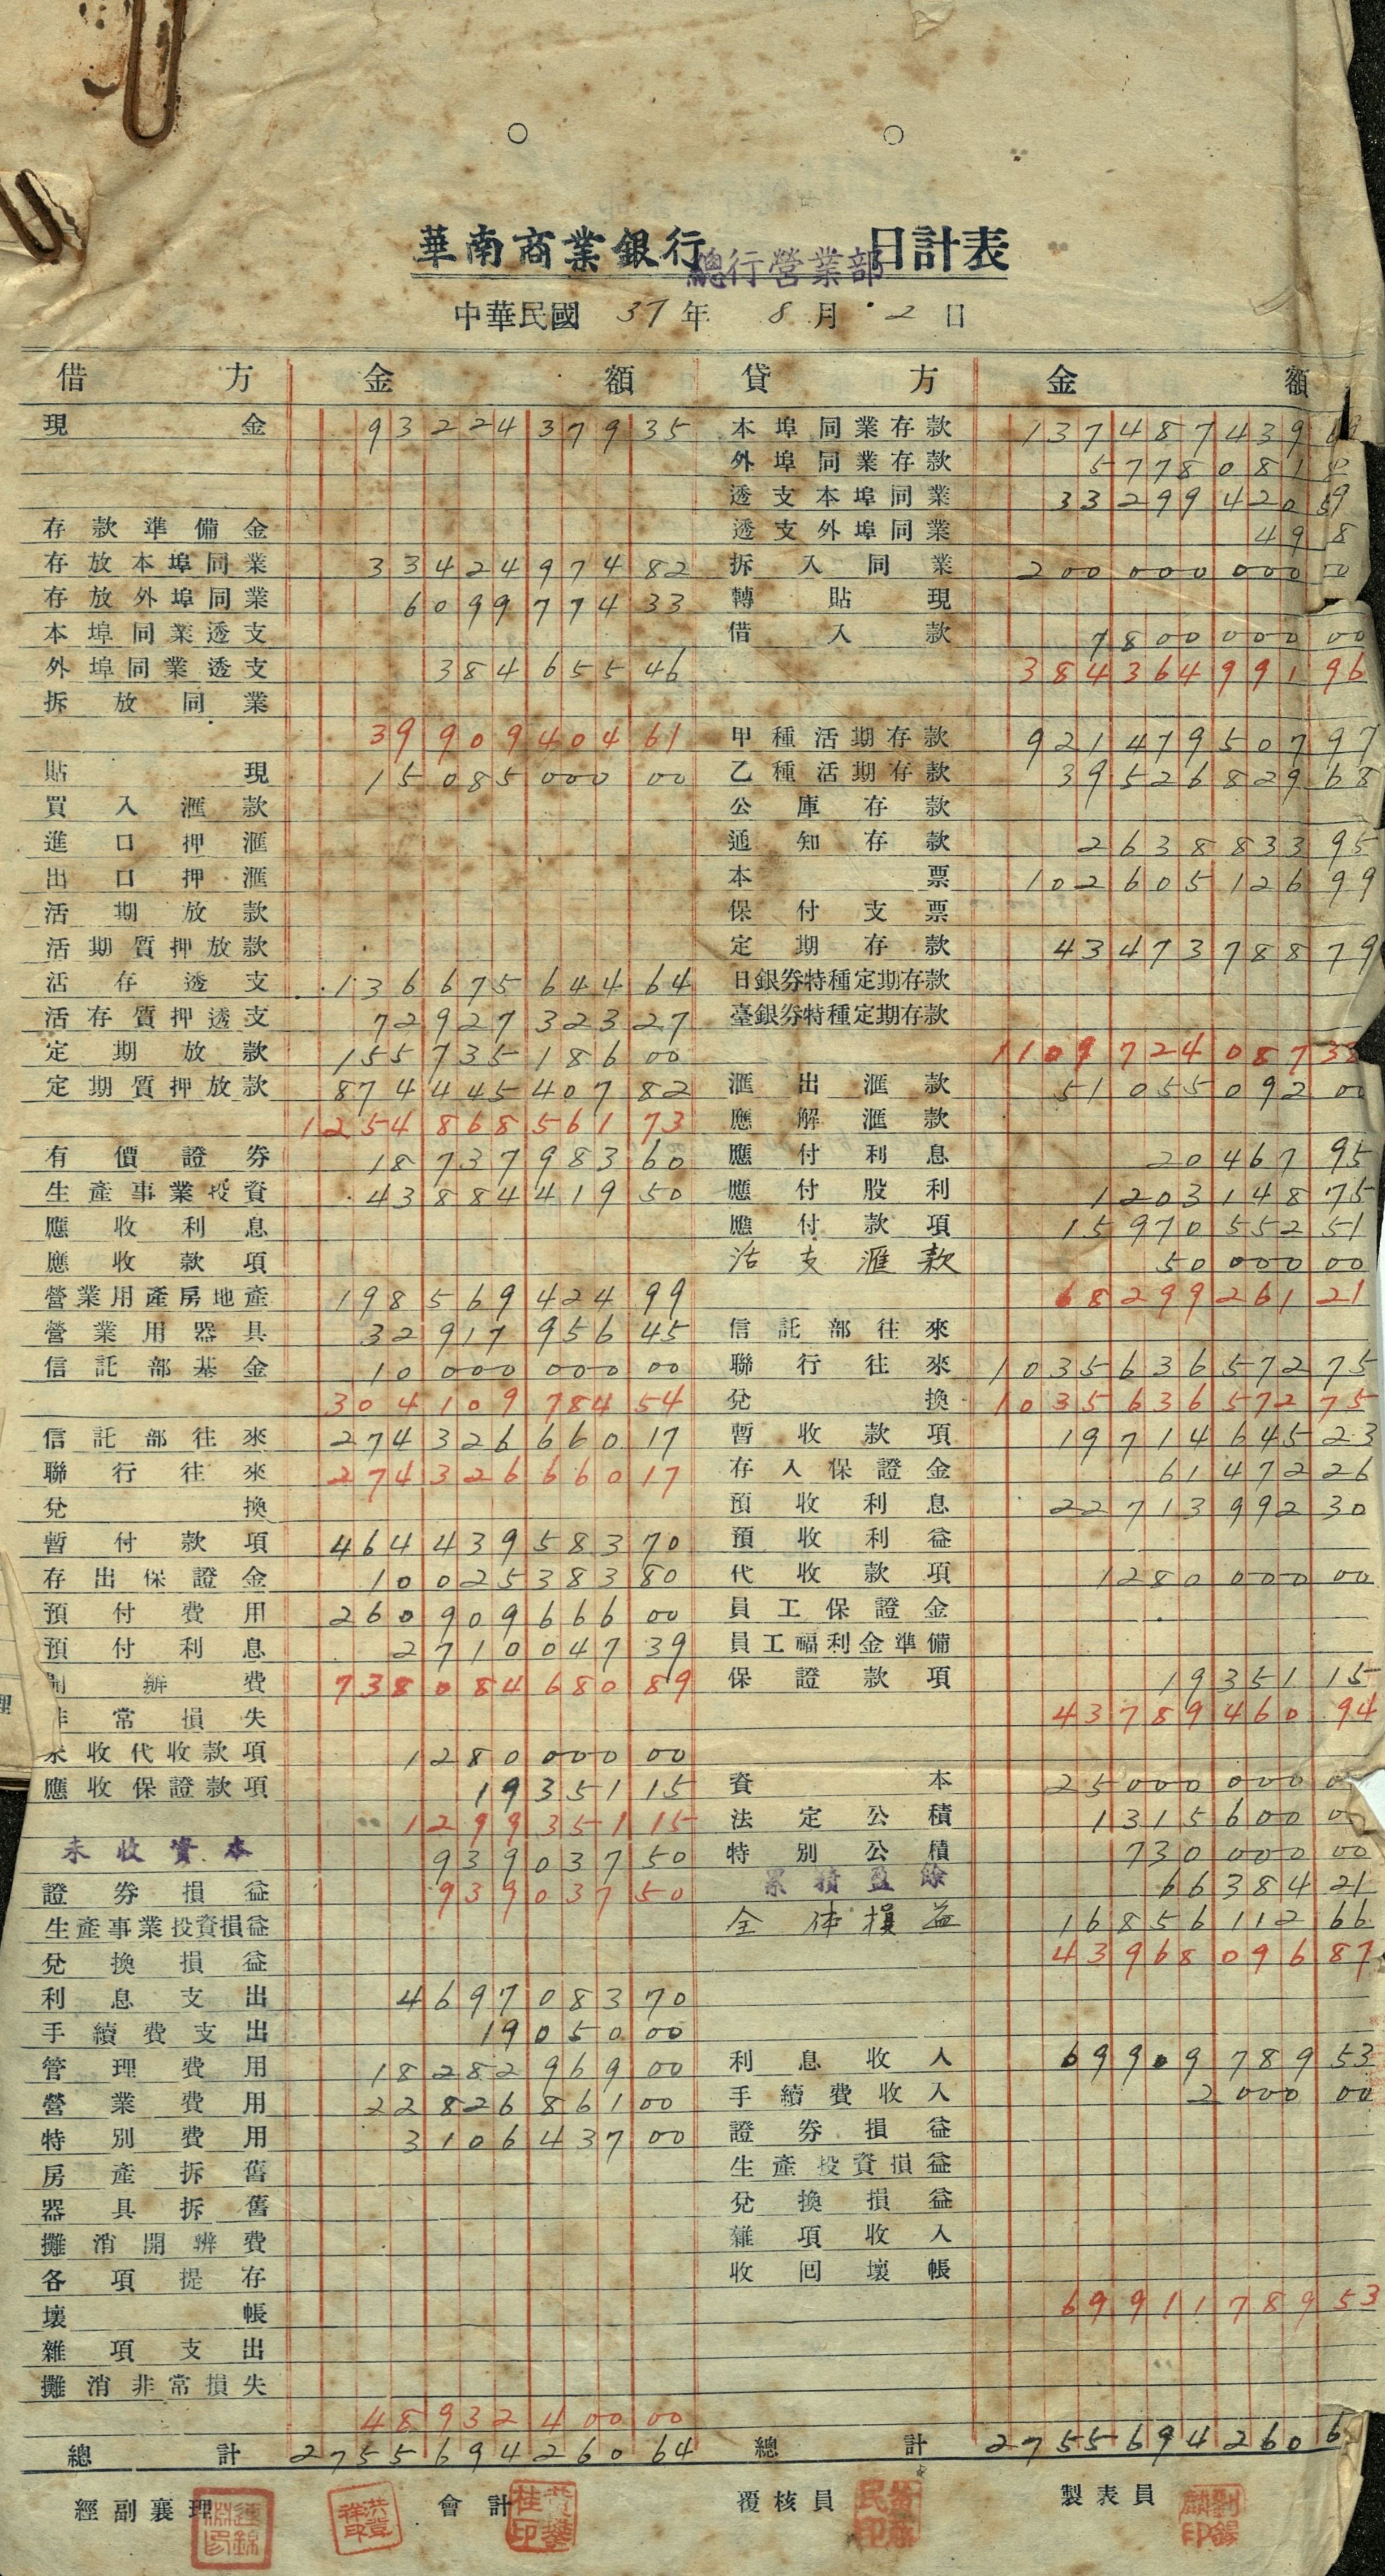 華南商業銀行 總行營業部 日計表
中華民國 37年 8月 2日
借方 金額 貸方 金額
現金 93224379 35 本埠同業存款 137487439
外埠同業存款 5778081
透支本埠同業 33299420 59
存款準備金 透支外埠同業 49 8
存放本埠同業 33424974 82 拆入同業 200000000 00
存放外埠同業 6099774 33 轉貼現
本埠同業透支 借入款 7800000 00
外埠同業透支 384655 46 384364991 96
拆放同業
39909404 61 甲種活期存款 921479507 97
貼現 15085000 00 乙種活期存款 39526829 68
買入滙款 公庫存款
進口押滙 通知存款 2638833 95
出口押滙 本票 102605126 99
活期放款 保付支票
活期質押放款 定期存款 43473788 79
活存透支 136675644 64 日銀券特種定期存款
活存質押透支 72927323 27 臺銀券特種定期存款
定期放款 155735186 00 1109724087 38
定期質押放款 874445407 82 滙出滙款 51055092 00
1254868561 73 應解滙款
有價證券 18737983 60 應付利息 20467 95
生產事業投資 43884419 50 應付股利 1203148 75
應收利息 應付款項 15970552 51
應收款項 活支滙款 50000 00
營業用產房地產 198569424 99 68299261 21
營業用器具 32917956 45 信託部往來
信託部基金 10000000 00 聯行往來 1035636572 75
304109784 54 兌換 1035636572 75
信託部往來 274326660 17 暫收款項 19714645 23
聯行往來 274326660 17 存入保證金 61472 26
兌換 預收利息 22713992 30
暫付款項 464439583 70 預收利益
存出保證金 10025383 80 代收款項 1280000 00
預付費用 260909666 00 員工保證金
預付利息 2710047 39 員工福利金準備
開辦費 738084680 89 保證款項 19351 15
非常損失 43789460 94
未收代收款項 1280000 00
應收保證款項 19351 15 資本 25000000
1299351 15 法定公積 1315600 00
未收資本 939037 50 特別公積 730000 00
證券損益 939037 50 累積盈餘 66384 21
生產事業投資損益 全体損益 16856112 66
兌換損益 43968096 87
利息支出 4697083 70
手續費支出 19050 00
管理費用 18282969 00 利息收入 69909789 53
營業費用 22826861 00 手續費收入 2000 00
特別費用 3106437 00 證券損益
房產拆舊 生產投資損益
器具拆舊 兌換損益
攤消開辨費 雜項收入
各項提存 收回壞帳
壞帳 69911789 53
雜項支出
攤消非常損失
48932400 00
總計 2755694260 64 總計 2755694260 6
經副襄理 會計 覆核員 製表員